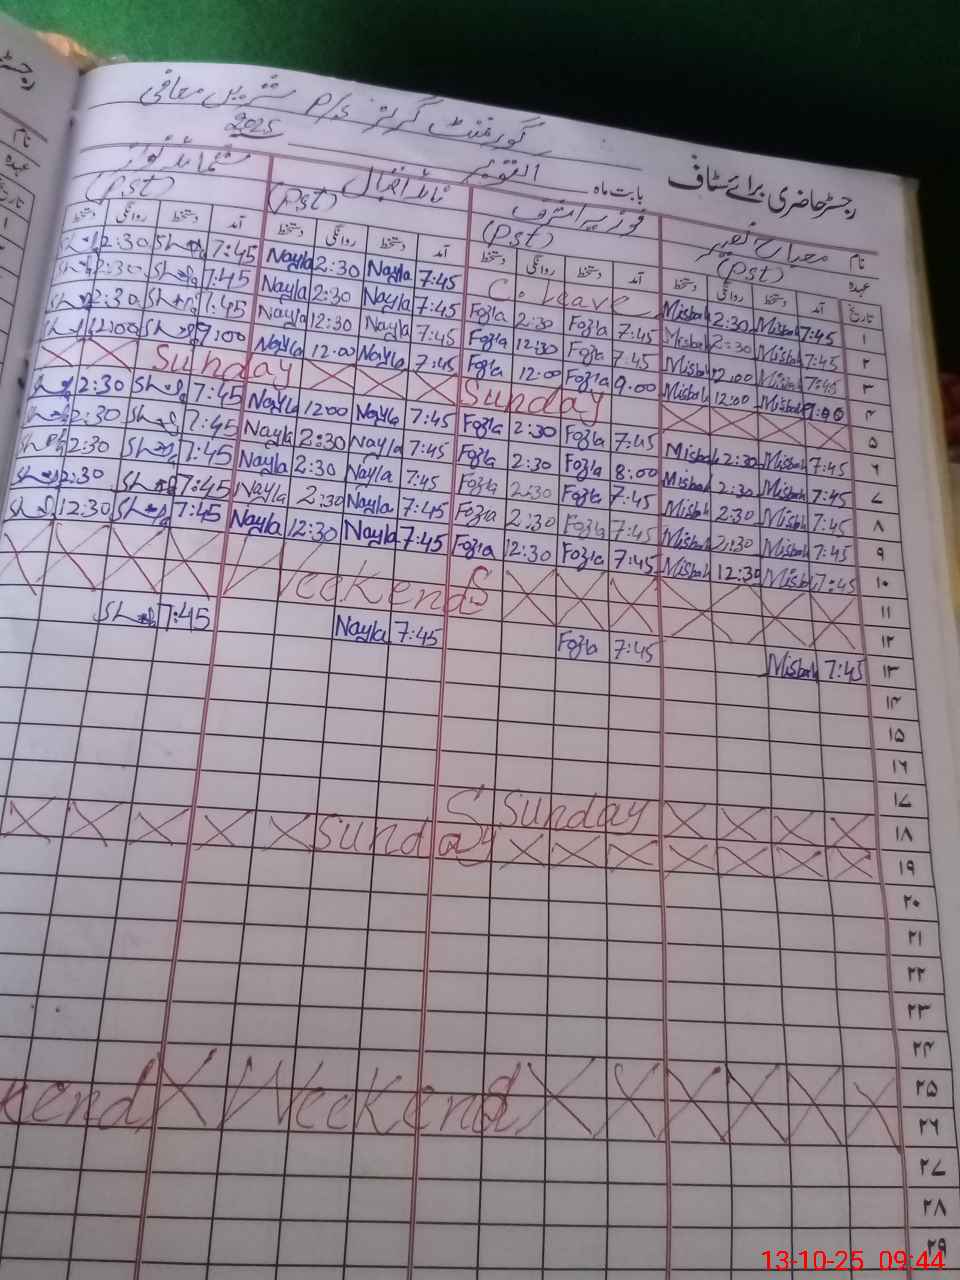 گورنمنٹ گرلز P/S شریں معافی
رجسٹر حاضری برائے سٹاف
بابت ماہ اکتوبر 2025
نام مصباح نصیر فوزیہ اشرف نائلہ افضال شمائلہ نواز
عہدہ (Pst) (Pst) (Pst) (Pst)
تاریخ آمد دستخط روانگی دستخط آمد دستخط روانگی دستخط آمد دستخط روانگی دستخط آمد دستخط روانگی دستخط
۱ 7:45 Misbah 2:30 Misbah C. leave 7:45 Nayla 2:30 Nayla 7:45 2:30
۲ 7:45 Misbah 2:30 Misbah 7:45 Fozia 2:30 Fozia 7:45 Nayla 2:30 Nayla 7:45 2:30
۳ 7:45 Misbah 12:00 Misbah 7:45 Fozia 12:30 Fozia 7:45 Nayla 12:30 Nayla 7:45 2:30
۴ 9:00 Misbah 12:00 Misbah 9:00 Fozia 12:00 Fozia 7:45 Nayla 12:00 Nayla 9:00 12:00
۵ Sunday Sunday
۶ 7:45 Misbah 2:30 Misbah 7:45 Fozia 2:30 Fozia 7:45 Nayla 1200 Nayla 7:45 2:30
۷ 7:45 Misbah 2:30 Misbah 8:00 Fozia 2:30 Fozia 7:45 Nayla 2:30 Nayla 7:45 2:30
۸ 7:45 Misbah 2:30 Misbah 7:45 Fozia 2:30 Fozia 7:45 Nayla 2:30 Nayla 7:45 2:30
۹ 7:45 Misbah 2:30 Misbah 7:45 Fozia 2:30 Fozia 7:45 Nayla 2:30 Nayla 7:45 2:30
۱۰ 7:45 Misbah 12:30 Misbah 7:45 Fozia 12:30 Fozia 7:45 Nayla 12:30 Nayla 7:45 12:30
۱۱ Weekends
۱۲
۱۳ 7:45 Misbah 7:45 Fozia 7:45 Nayla 7:45
۱۴
۱۵
۱۶
۱۷
۱۸ Sunday
۱۹ Sunday
۲۰
۲۱
۲۲
۲۳
۲۴
۲۵ Weekends kend
۲۶
۲۷
۲۸
۲۹
13-10-25 09:44